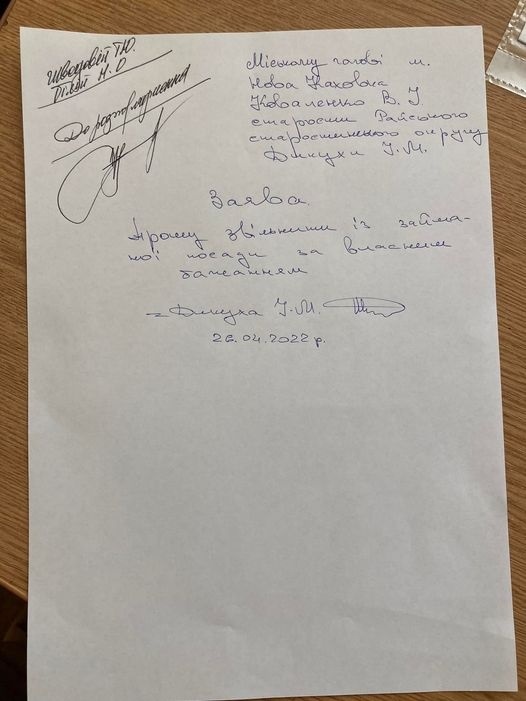 До розпорядження
Міському голові м.
Нова Каховка
Коваленко В. І
старости Райського
старостинського округу
Дикухи І.М.
Заява.
Прошу звільнити із займа-
ної посади за власним
бажанням
Дикуха І.М.
26.04.2022 р.